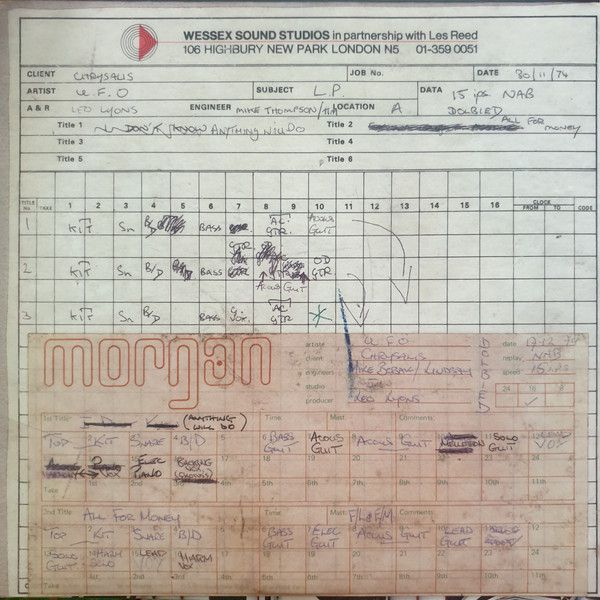 WESSEX SOUND STUDIOS in partnership with Les Reed
106 HIGHBURY NEW PARK LONDON N5 01-359 0051
CLIENT CHRYSALIS JOB No. DATE 30/11/74
ARTIST U.F.O SUBJECT L.P. DATA 15 ips NAB
A & R LEO LYONS ENGINEER MIKE THOMPSON/TIM LOCATION A DOLBIED
Title 1 DON'T KNOW ANYTHING WILL DO Title 2 ALL FOR MONEY
Title 3 Title 4
Title 5 Title 6
TITLE No. TAKE 1 2 3 4 5 6 7 8 9 10 11 12 13 14 15 16 CLOCK FROM TO CODE
1 KIT Sn B/D BASS AC. GTR. ACOUS GUIT
GTR
2 KIT Sn B/D BASS GTR OD GTR
ACOUS GUIT
3 KIT Sn B/D BASS GTR. AC GTR
morgan
artist U.F.O date 12.12.74
client CHRYSALIS replay NAB
engineers MIKE BOBAK/LINDSAY speed 15 ips
studio 24 16 8
producer LEO LYONS
DOLBIED
1st Title: I D K (ANYTHING WILL DO) Time: Mast: Comments:
TOP KIT SNARE B/D 5 BASS GUIT ACOUS GUIT ACOUS GUIT MELLOTRON SOLO GUIT LEAD VOX
VOX ELEC PIANO BACKING VOX 17 18 19 20 21 22 23 24
Take 1st 2nd 3rd 4th 5th 6th 7th 8th 9th 10th 11th
2nd Title: ALL FOR MONEY Time: Mast: F/L@F/M Comments:
TOP KIT SNARE B/D 5 BASS GUIT ELEC GUIT ACOUS GUIT LEAD GUIT 12
SOLO GUIT HARM SOLO LEAD VOX HARM VOX 17 18 19 20 21 22 23 24
Take 1st 2nd 3rd 4th 5th 6th 7th 8th 9th 10th 11th